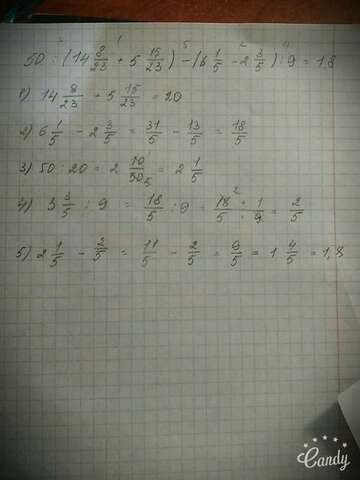 2 1 5 2 4
50 : (14 8/23 + 5 15/23) - (6 1/5 - 2 3/5) : 9 = 1,8
1) 14 8/23 + 5 15/23 = 20
2) 6 1/5 - 2 3/5 = 31/5 - 13/5 = 18/5
3) 50 : 20 = 2 10/50 5 = 2 1/5
4) 3 3/5 : 9 = 18/5 : 9 = 18 · 1/5 · 9 = 2/5
5) 2 1/5 - 2/5 = 11/5 - 2/5 = 9/5 = 1 4/5 = 1,8
Candy